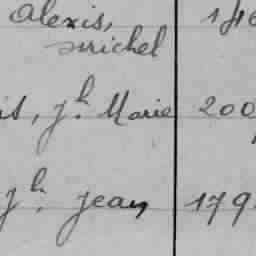 Alexis,
Michel
, Jh. Marie 200
Jh. Jean 179